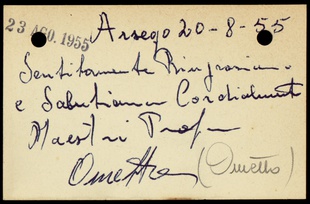 23 AGO. 1955
Arsego 20-8-55
Sentitamente Ringraziamo
e Salutiamo Cordialmente
Maestri
Ometto
(Ometto)